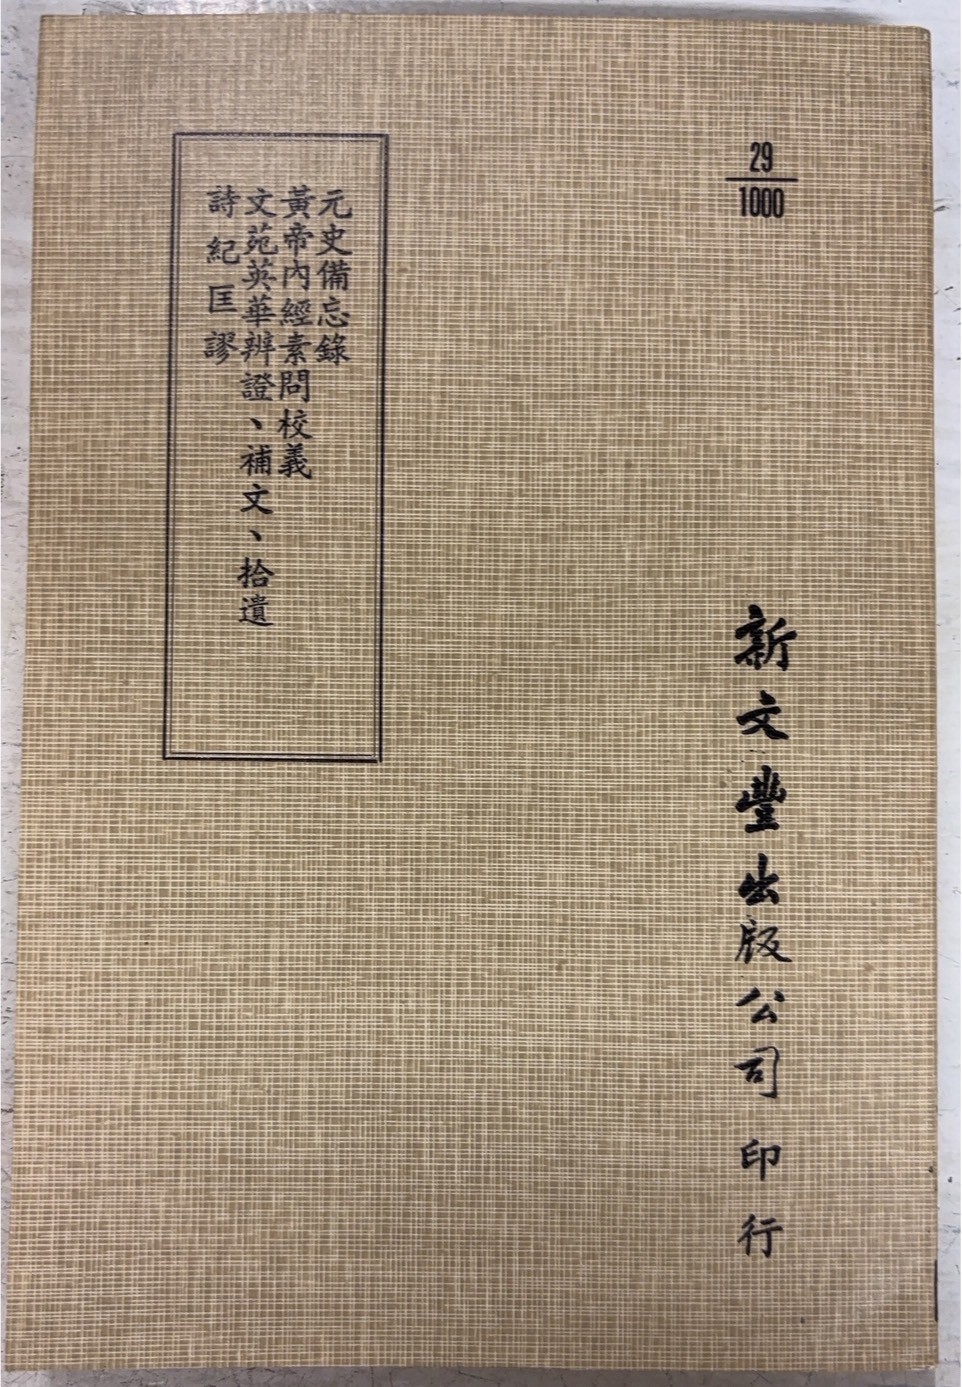 29
1000
新文豐出版公司印行
元史備忘錄
黃帝內經素問校義
文苑英華辨證、補文、拾遺
詩紀匡謬